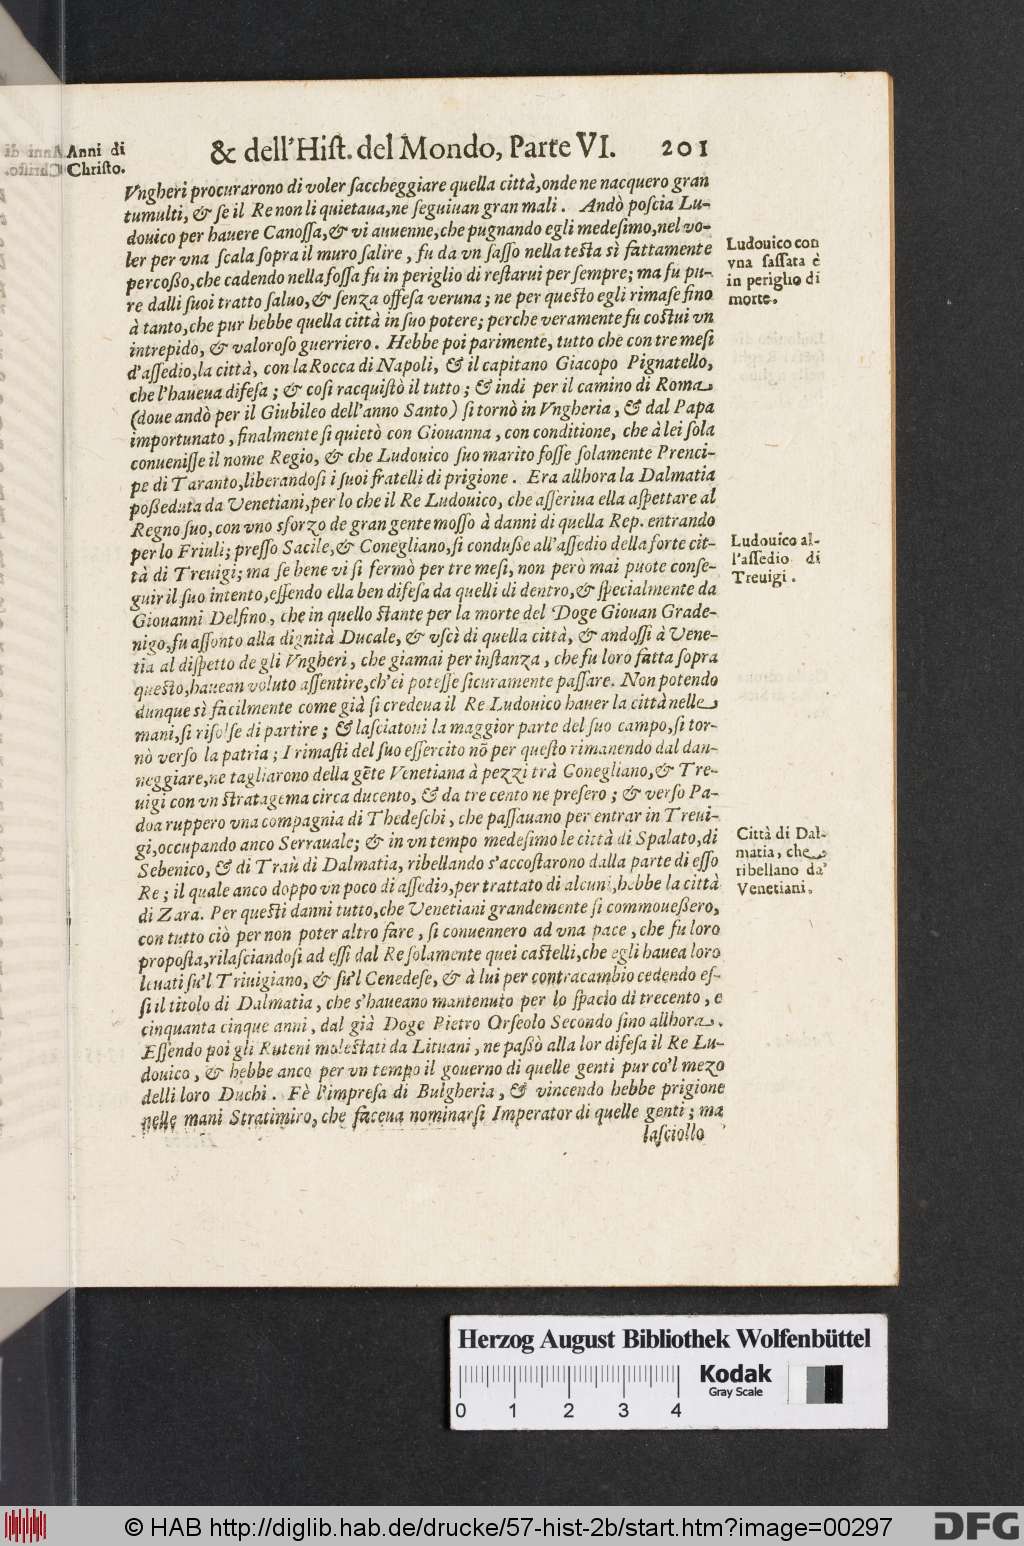 Anni di
Christo.
& dell'Hist. del Mondo, Parte VI. 201
Vngheri procurarono di voler saccheggiare quella città, onde ne nacquero gran
tumulti, & se il Re non li quietaua, ne seguiuan gran mali. Andò poscia Lu-
douico per hauere Canossa, & vi auuenne, che pugnando egli medesimo, nel vo-
ler per vna scala sopra il muro salire, fu da vn sasso nella testa sì fattamente
percosso, che cadendo nella fossa fu in periglio di restarui per sempre; ma fu pu-
re dalli suoi tratto saluo, & senza offesa veruna; ne per questo egli rimase fino
à tanto, che pur hebbe quella città in suo potere; perche veramente fu costui vn
intrepido, & valoroso guerriero. Hebbe poi parimente, tutto che con tre mesi
d'assedio, la città, con la Rocca di Napoli, & il capitano Giacopo Pignatello,
che l'haueua difesa; & così racquistò il tutto; & indi per il camino di Roma
(doue andò per il Giubileo dell'anno Santo) si tornò in Vngheria, & dal Papa
importunato, finalmente si quietò con Giouanna, con conditione, che à lei sola
conuenisse il nome Regio, & che Ludouico suo marito fosse solamente Prenci-
pe di Taranto, liberandosi i suoi fratelli di prigione. Era allhora la Dalmatia
posseduta da Venetiani, per lo che il Re Ludouico, che asseriua ella aspettare al
Regno suo, con vno sforzo de gran gente mosso à danni di quella Rep. entrando
per lo Friuli; presso Sacile, & Conegliano, si condusse all'assedio della forte cit-
tà di Treuigi; ma se bene vi si fermò per tre mesi, non però mai puote conse-
guir il suo intento, essendo ella ben difesa da quelli di dentro, & specialmente da
Giouanni Delfino, che in quello stante per la morte del Doge Giouan Grade-
nigo, fu assonto alla dignità Ducale, & vscì di quella città, & andossi à Vene-
tia al dispetto de gli Vngheri, che giamai per instanza, che fu loro fatta sopra
questo, hauean voluto assentire, ch'ei potesse sicuramente passare. Non potendo
dunque sì facilmente come già si credeua il Re Ludouico hauer la città nelle
mani, si risolse di partire; & lasciatoui la maggior parte del suo campo, si tor-
nò verso la patria; I rimasti del suo essercito nõ per questo rimanendo dal dan-
neggiare, ne tagliarono della gẽte Venetiana à pezzi trà Conegliano, & Tre-
uigi con vn stratagema circa ducento, & da tre cento ne presero; & verso Pa-
doa ruppero vna compagnia di Thedeschi, che passauano per entrar in Treui-
gi, occupando anco Serrauale; & in vn tempo medesimo le città di Spalato, di
Sebenico, & di Traù di Dalmatia, ribellando s'accostarono dalla parte di esso
Re; il quale anco doppo vn poco di assedio, per trattato di alcuni, hebbe la città
di Zara. Per questi danni tutto, che Venetiani grandemente si commouessero,
con tutto ciò per non poter altro fare, si conuennero ad vna pace, che fu loro
proposta, rilasciandosi ad essi dal Re solamente quei castelli, che egli hauea loro
leuati su'l Triuigiano, & su'l Cenedese, & à lui per contracambio cedendo es-
si il titolo di Dalmatia, che s'haueano mantenuto per lo spacio di trecento, e
cinquanta cinque anni, dal già Doge Pietro Orseolo Secondo sino allhora.
Essendo poi gli Ruteni molestati da Lituani, ne passò alla lor difesa il Re Lu-
douico, & hebbe anco per vn tempo il gouerno di quelle genti pur co'l mezo
delli loro Duchi. Fè l'impresa di Bulgheria, & vincendo hebbe prigione
nelle mani Stratimiro, che faceua nominarsi Imperator di quelle genti; ma
lasciollo
Ludouico con
vna sassata è
in periglio di
morte.
Ludouico al-
l'assedio di
Treuigi.
Città di Dal-
matia, che
ribellano da'
Venetiani.
Herzog August Bibliothek Wolfenbüttel
Kodak
Gray Scale
0 1 2 3 4
© HAB http://diglib.hab.de/drucke/57-hist-2b/start.htm?image=00297
DFG